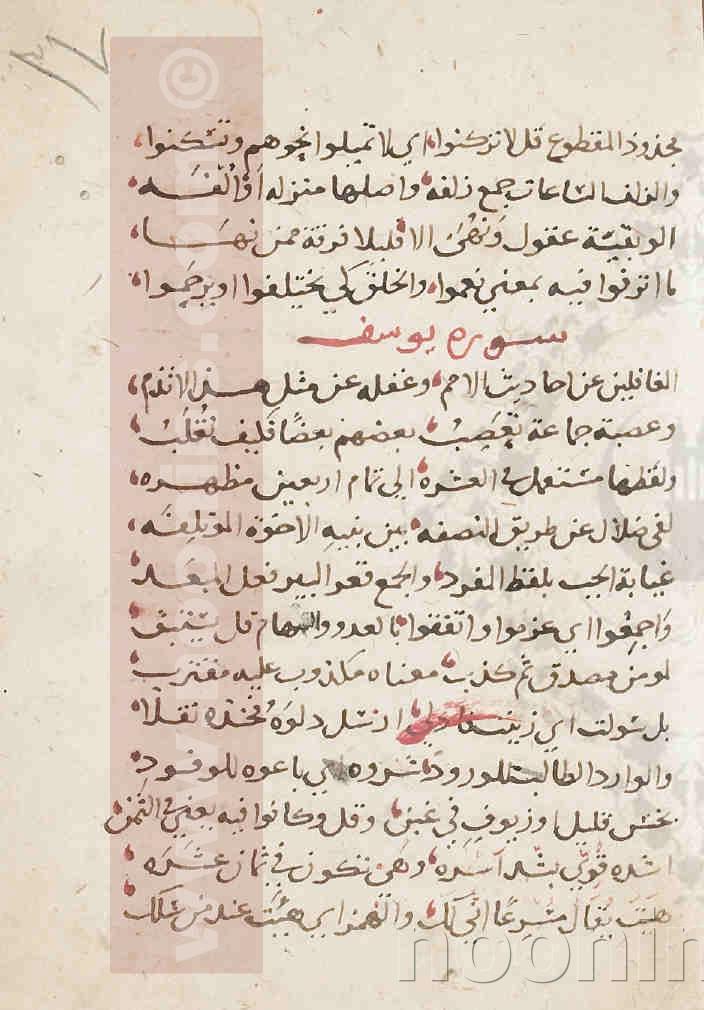 مجذوذ المقطوع قل لا تركنوا اي لا تميلوا نحوهم وتشكنوا
والزلف الساعات جمع زلفه واصلها منزله او الفه
الو بقية عقول ونهى الا قليلا فرقة ممن نها
ما اترفوا فيه بمعنى نعموا والخلق كي يختلفوا او يرحموا
سوره يوسف
الغافلين عن احاديث الامم وغفله عن مثل هذا لا تذم
وعصبة جماعة تعصب بعضهم بعضا فكيف تغلب
ولفظها مستعمل في العشره الى تمام اربعين مظهره
لفي ضلال عن طريق النصفه بين بنيه الاخوة المؤتلفه
غيابة الجب بلفظ المفرد والجمع قعر البير فعل المبعد
واجمعوا اي عزموا واتفقوا بالعدو والسهام قل يستبق
لومن مصدق ثم كذب معناه مكذوب عليه مفترب
بل سولت اي زينت ادلى ارسل دلوه فخذه نقلا
والوارد الطالب للورود شروه اي باعوه للوفود
بخس قليل او زيوف في غبن وقل وكانوا فيه يعني في الثمن
اشده قوي بشد اسره وهي تكون في ثمان عشره
هيت يقال مسرعا اني لك والهمز اي هيئت عند من سلك
© www.noonino.com
noonin